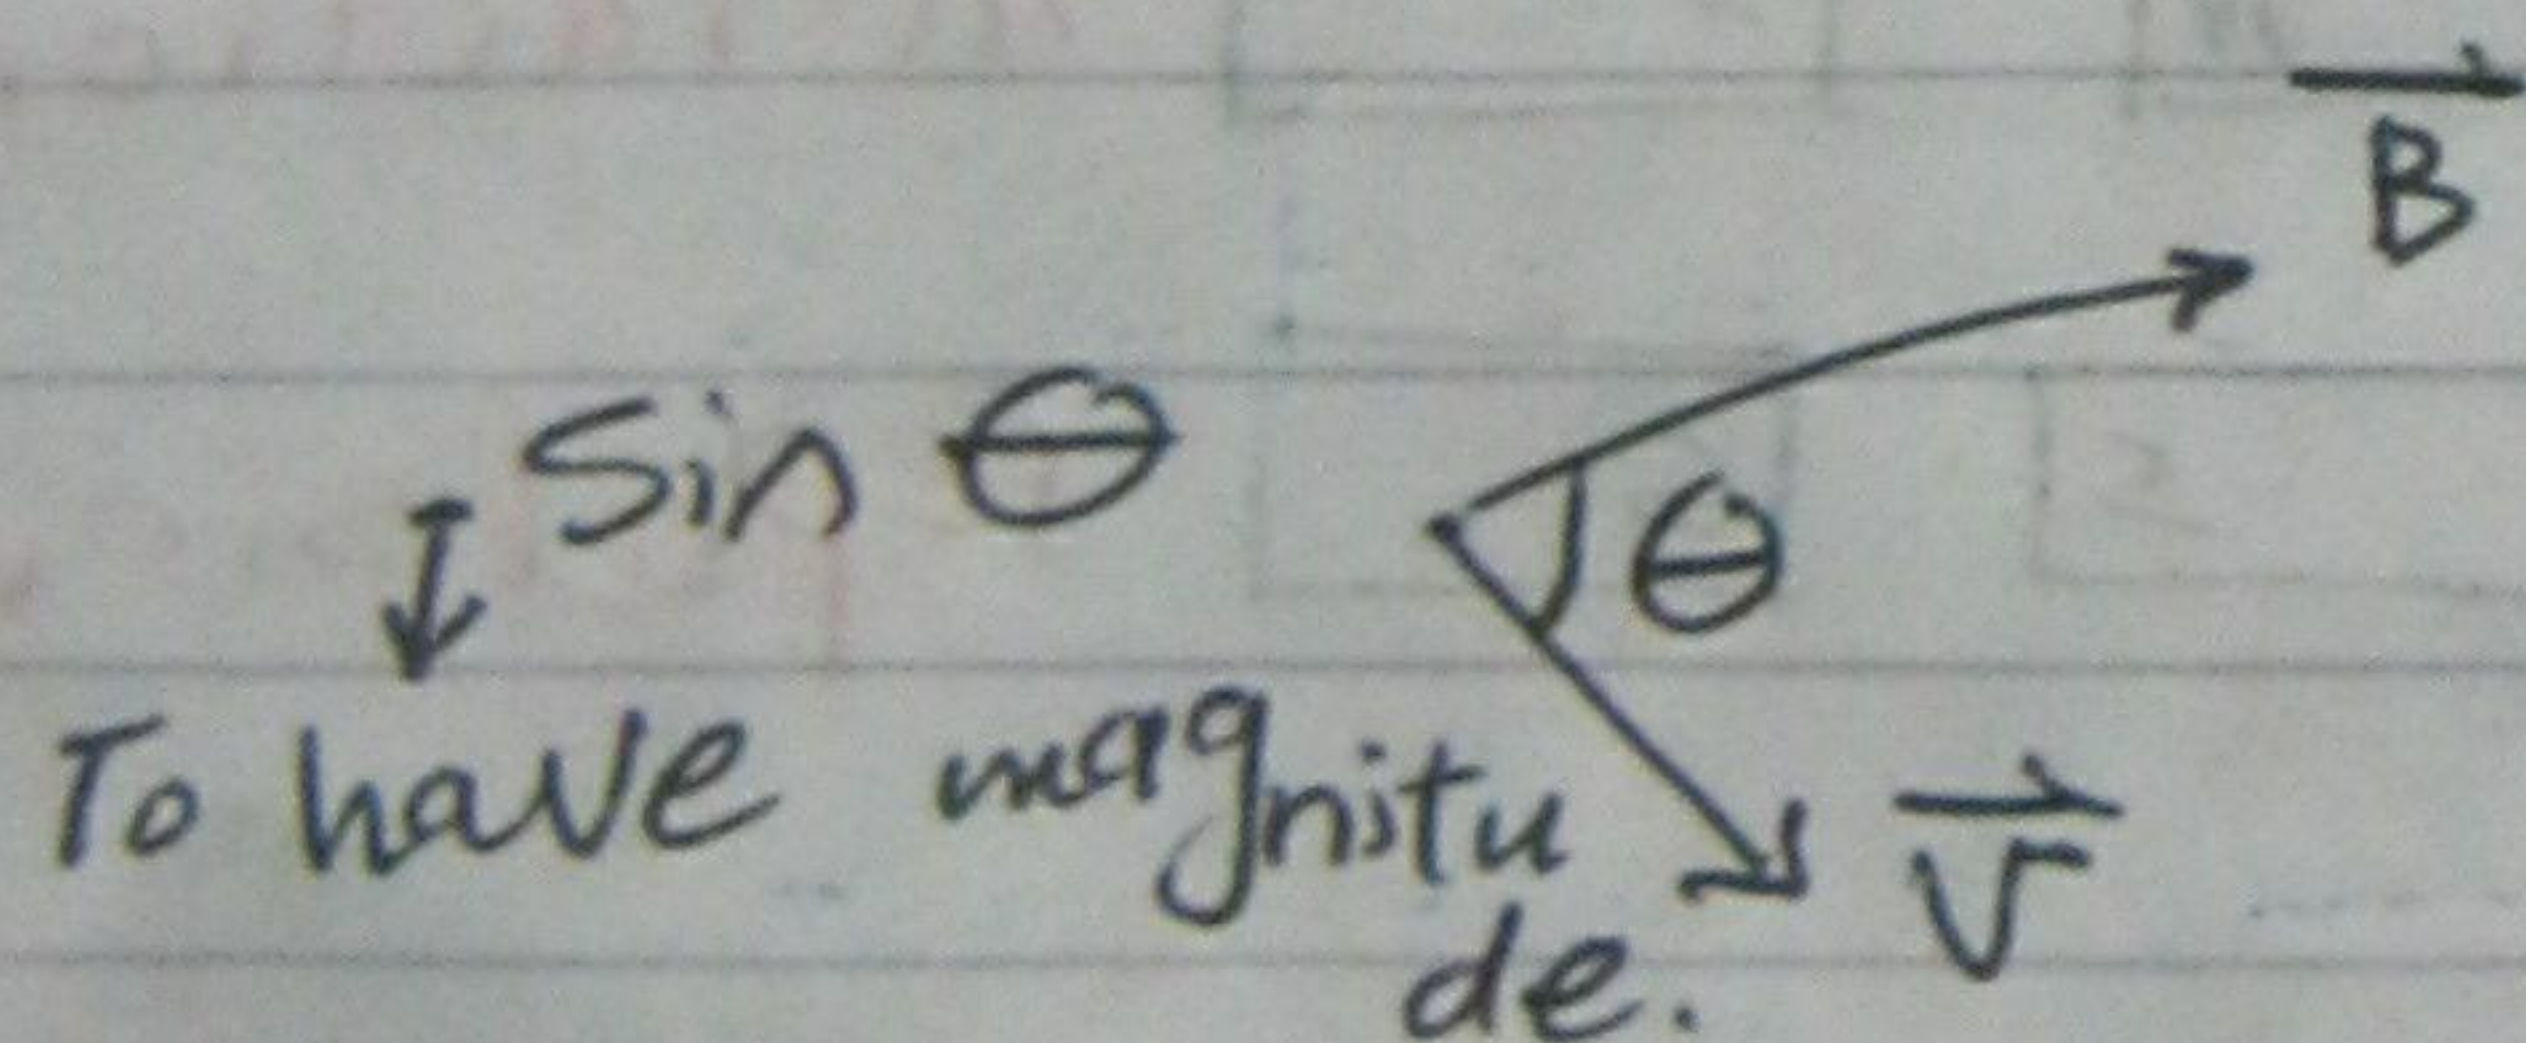 B
sin θ
θ
To have magnitu
de.
V